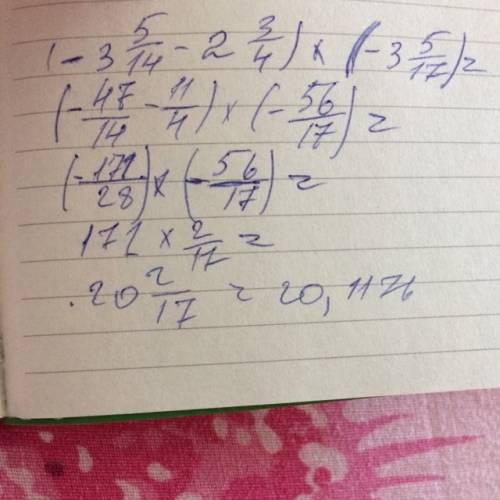 (-3 5/14 - 2 3/4) × (-3 5/17) =
(-47/14 - 11/4) × (-56/17) =
(-171/28) × (-56/17) =
171 × 2/17 =
20 2/17 = 20,1176